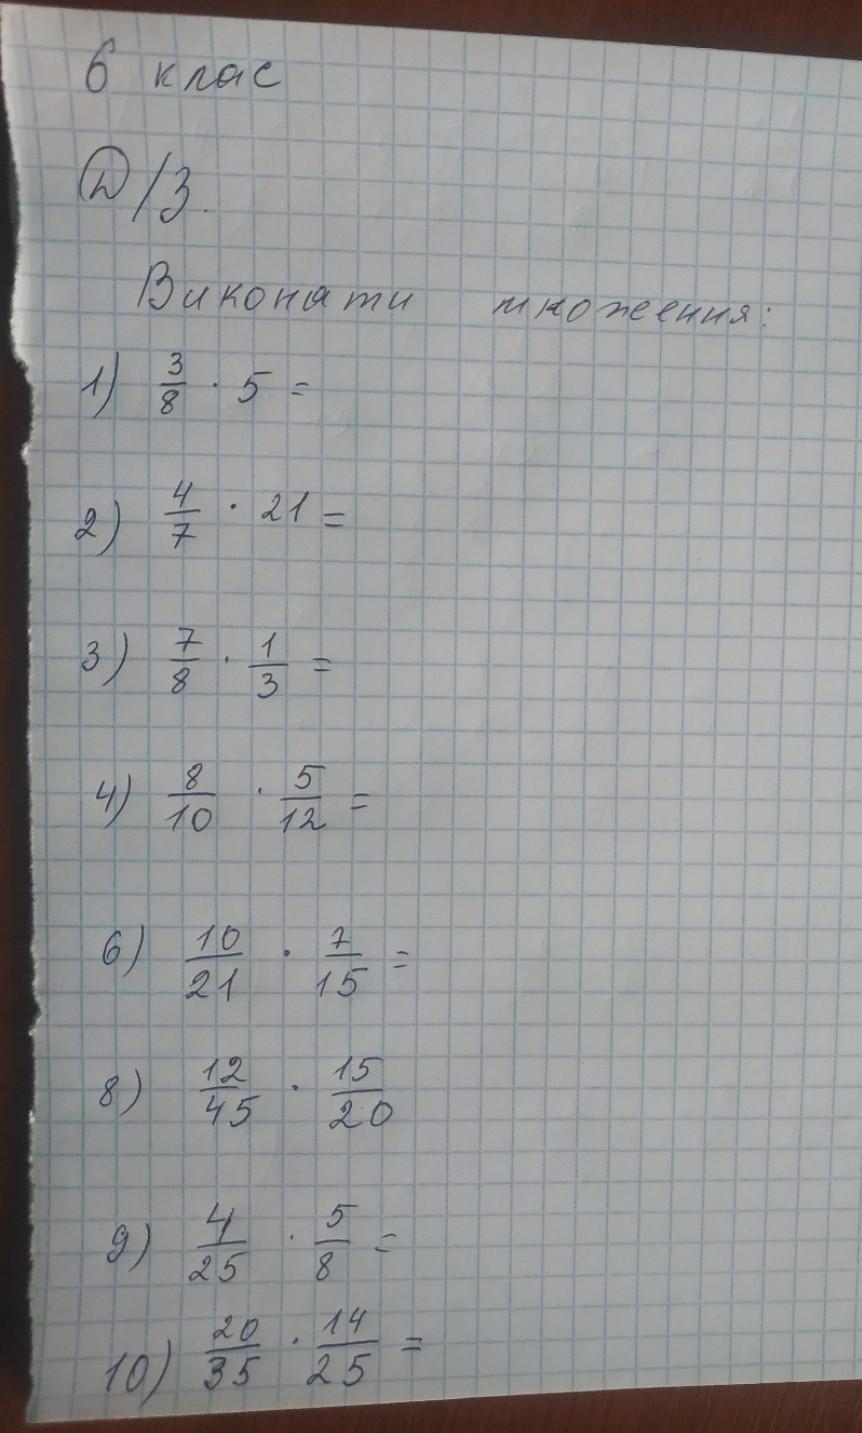 6 клас
Д/З.
Виконати множення:
1) 3/8 · 5 =
2) 4/7 · 21 =
3) 7/8 · 1/3 =
4) 8/10 · 5/12 =
6) 10/21 · 7/15 =
8) 12/45 · 15/20
9) 4/25 · 5/8 =
10) 20/35 · 14/25 =